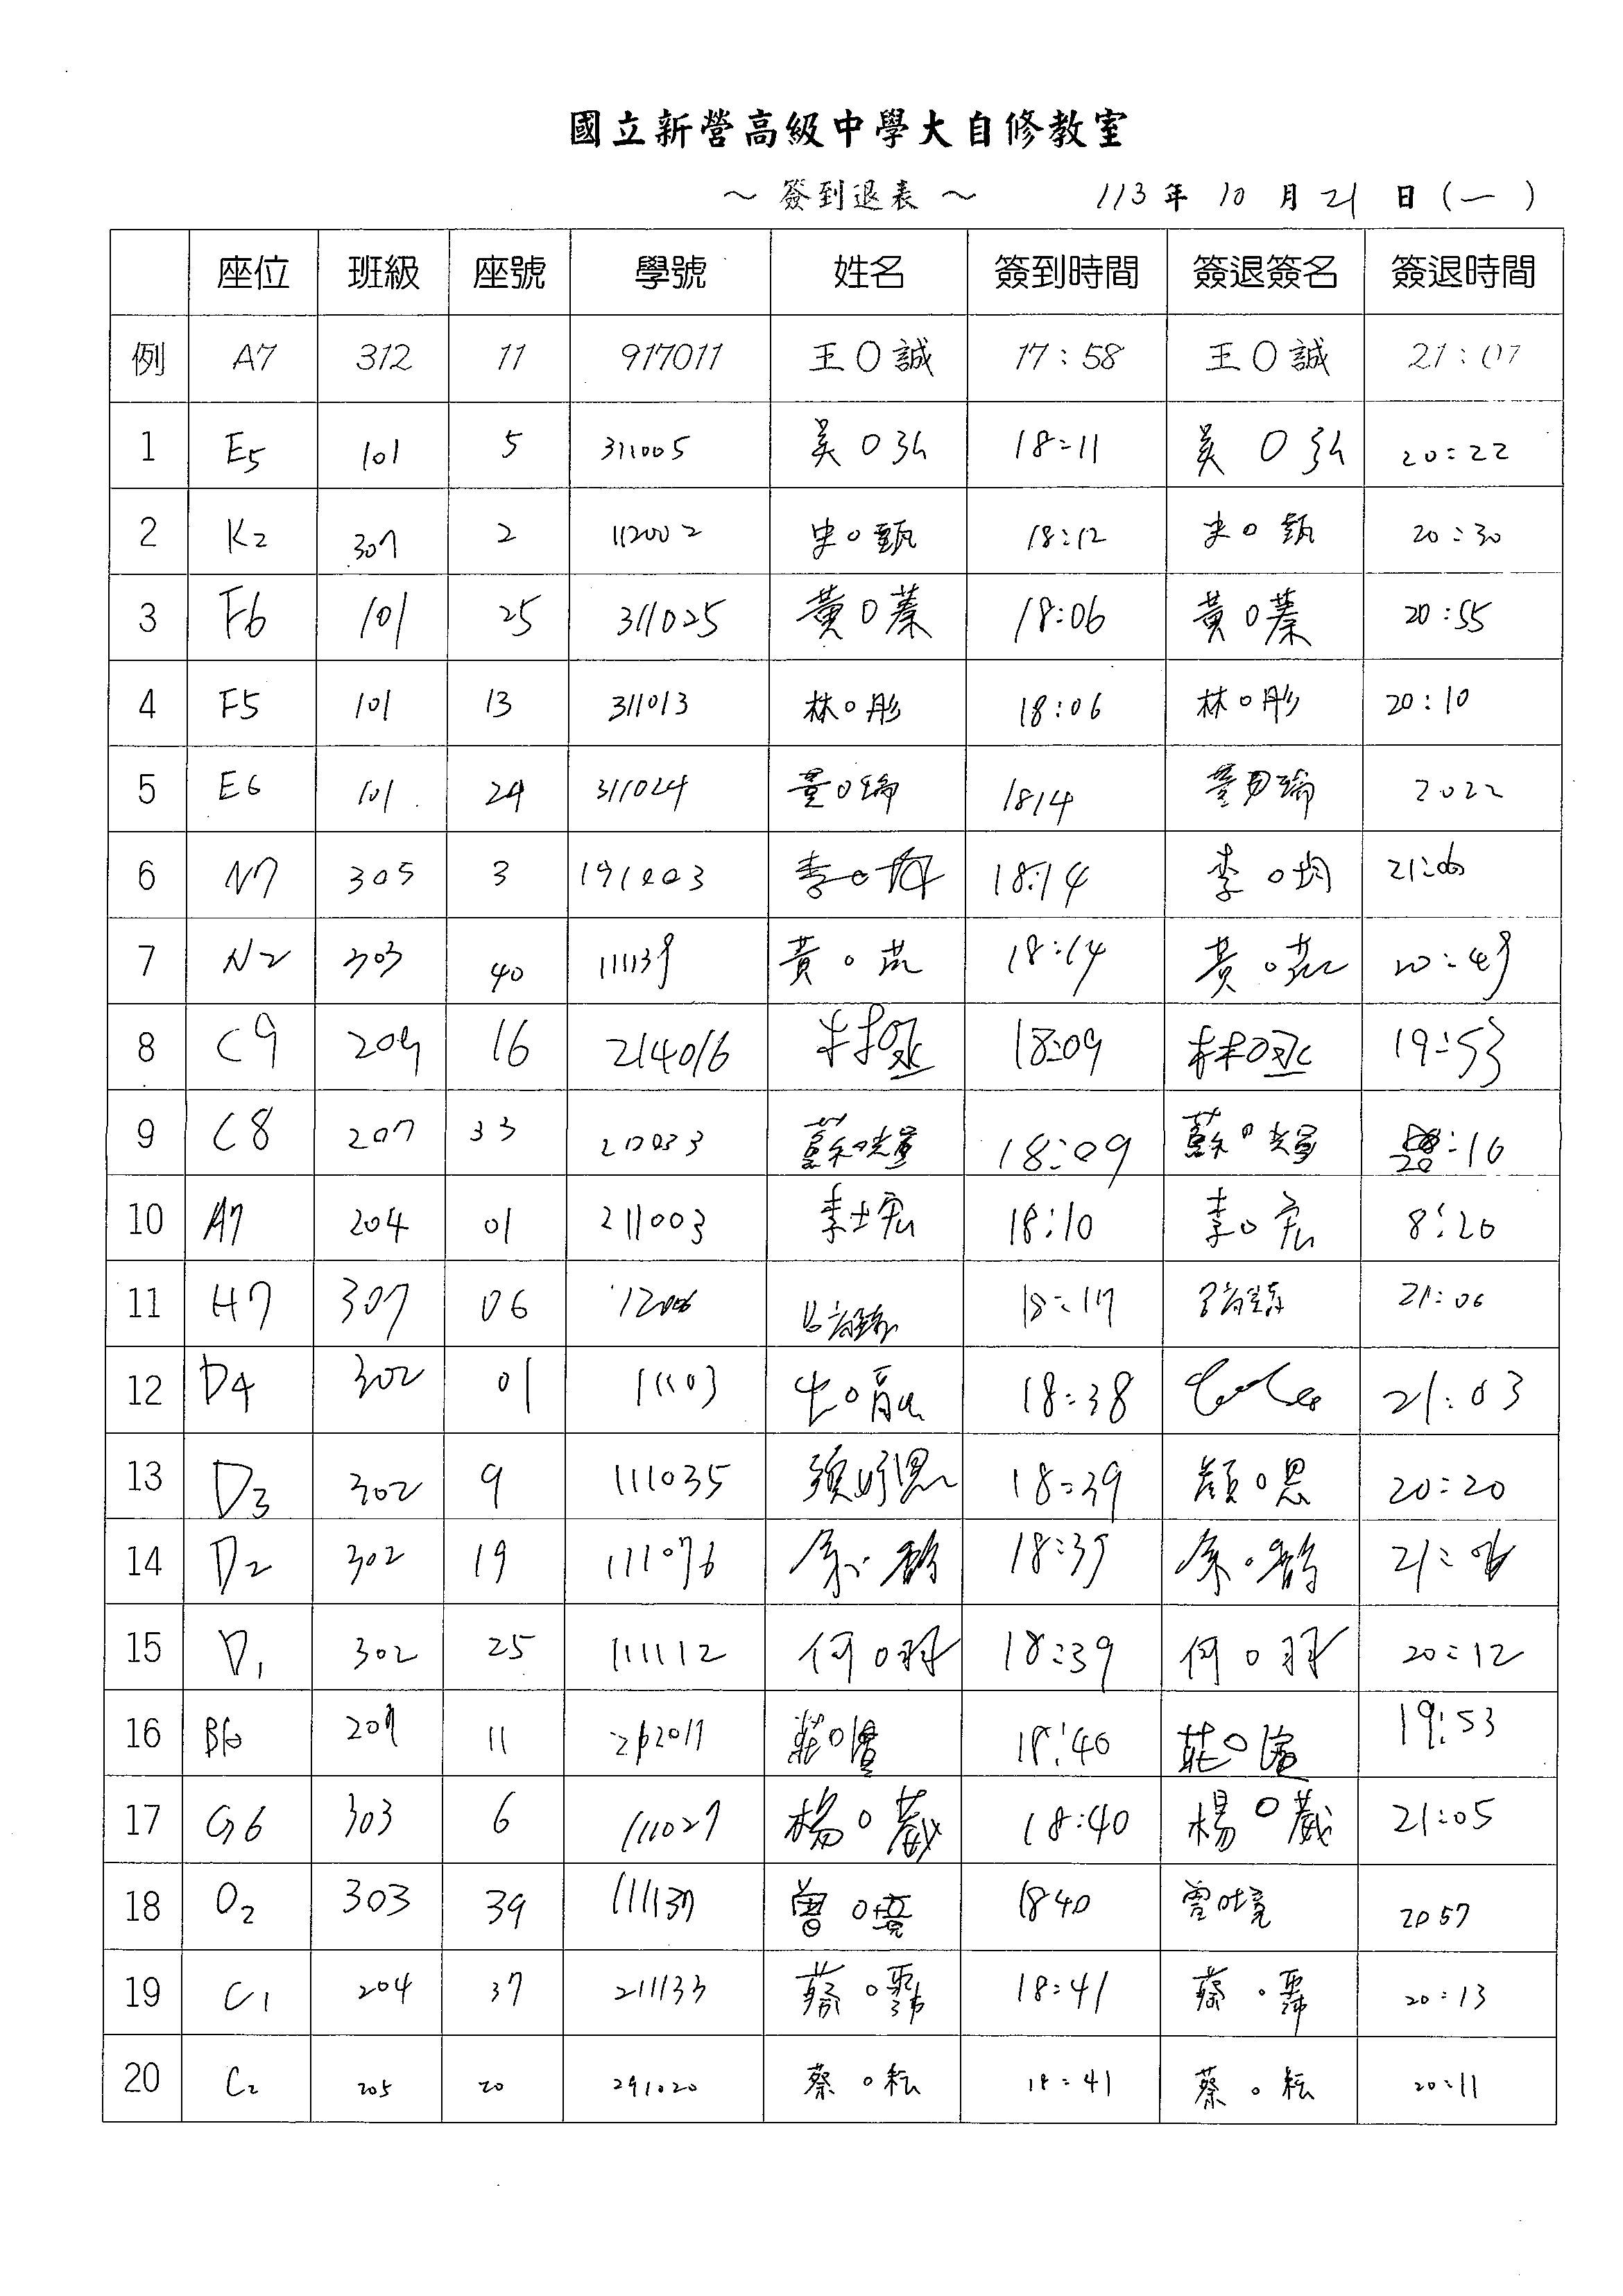 國立新營高級中學大自修教室
～ 簽到退表 ～ 113 年 10 月 21 日 (一)
座位 班級 座號 學號 姓名 簽到時間 簽退簽名 簽退時間
例 A7 312 11 917011 王〇誠 17:58 王〇誠 21:07
1 E5 101 5 311005 吳〇弘 18:11 吳〇弘 20:22
2 K2 307 2 112002 史〇甄 18:12 史〇甄 20:30
3 F6 101 25 311025 黃〇蓁 18:06 黃〇蓁 20:55
4 F5 101 13 311013 林〇彤 18:06 林〇彤 20:10
5 E6 101 24 311024 〇 1814 2022
6 N7 305 3 191003 李〇 18:14 李〇均 21:00
7 N2 303 40 111138 黃〇 18:14 黃〇 20:48
8 C9 209 16 214016 林〇丞 18:09 林〇丞 19:53
9 C8 207 33 蘇〇輝 18:09 蘇〇輝 20:16
10 A7 204 01 211003 李 宏 18:10 李〇宏 8:20
11 H7 307 06 18:17 21:06
12 D4 302 01 〇 18:38 21:03
13 D3 302 9 111035 顏 恩 18:39 顏〇恩 20:20
14 D2 302 19 111076 〇 18:39 〇
15 D1 302 25 111112 何〇 18:39 何〇 20:12
16 11 莊〇 18:40 莊〇 19:53
17 G6 303 6 111027 楊〇葳 18:40 楊〇葳 21:05
18 O2 303 39 111137 曾〇境 1840 曾〇境 2057
19 C1 204 37 211133 蔡〇霈 18:41 蔡〇霈 20:13
20 C2 205 20 291020 蔡〇耘 18:41 蔡〇耘 20:11